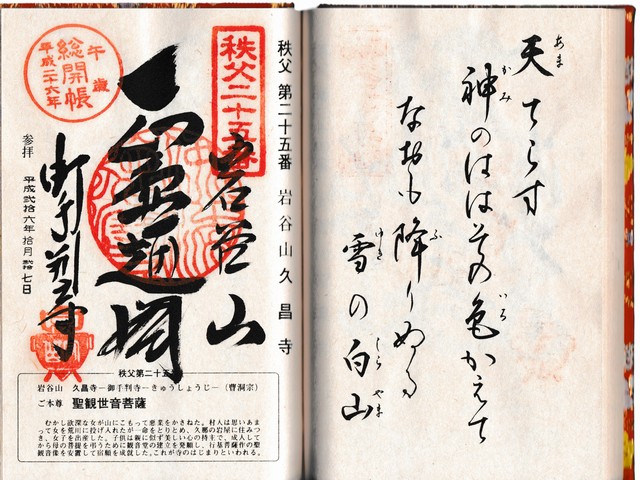 天てらす
あま
神のははその色かえて
がみ
いろ
なおも降りぬる
ふ
雪の白山
ゆき
しらやま
秩父 第二十五番 岩谷山久昌寺
秩父二十五番
岩谷山
午歳
総開帳
平成二十六年
参拝 平成弐拾六年拾月
七日
秩父第二十五
岩谷山 久昌寺―御手判寺―きゅうしょうじ―(曹洞宗)
ご本尊 聖観世音菩薩
むかし欲深な女が山にこもって悪業をかさねた。村人は思いあま
って女を荒川に投げ入れたが一命をとりとめ、久那の岩屋に住みつ
き、女子を出産した。子供は親に似ず美しい心の持主で、成人して
から母の菩提を弔うために観音堂の建立を発願し、行基菩薩作の聖
観音像を安置して宿願を成就した。これが寺のはじまりといわれる。